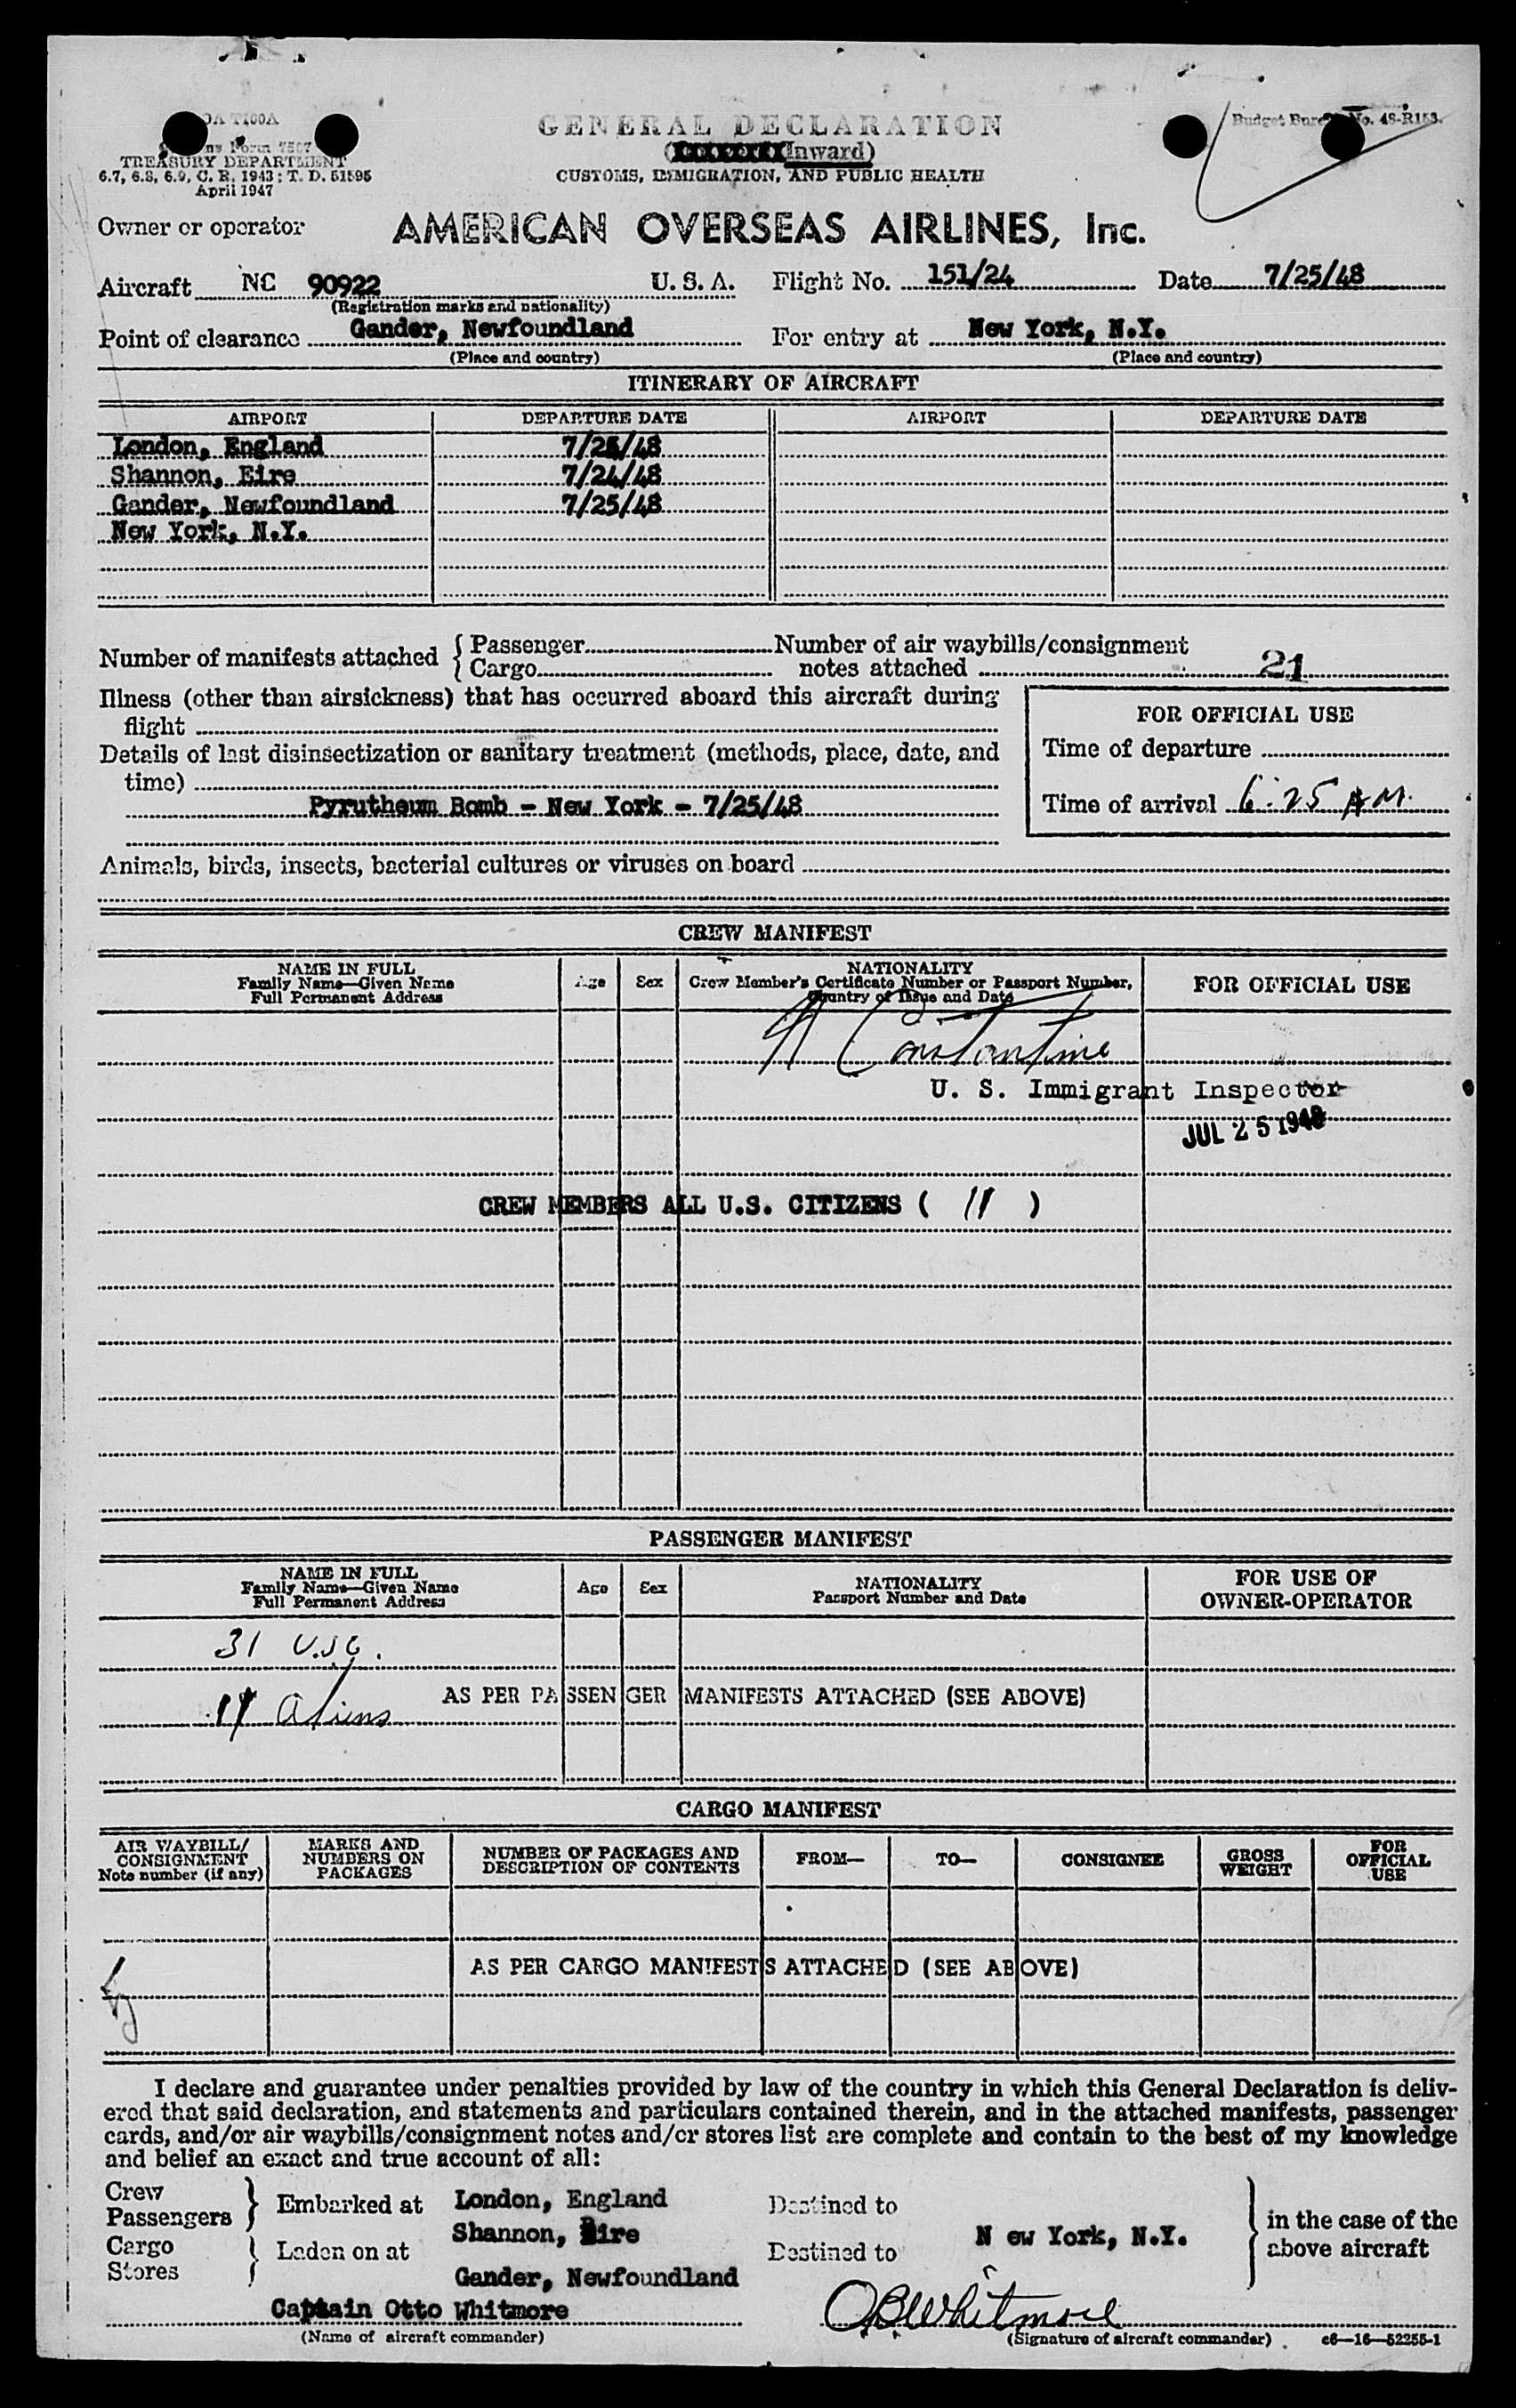 GENERAL DECLARATION
Inward)
CUSTOMS, IMMIGRATION, AND PUBLIC HEALTH
Form 7507
TREASURY DEPARTMENT
6.7, 6.8, 6.9, C. R. 1943; T. D. 51595
April 1947
Budget No. 48-R153.
Owner or operator AMERICAN OVERSEAS AIRLINES, Inc.
Aircraft NC 90922 U. S. A. Flight No. 151/24 Date 7/25/48
(Registration marks and nationality)
Point of clearance Gander, Newfoundland For entry at New York, N.Y.
(Place and country) (Place and country)
ITINERARY OF AIRCRAFT
AIRPORT DEPARTURE DATE AIRPORT DEPARTURE DATE
London, England
Shannon, Eire 7/24/48
Gander, Newfoundland 7/25/48
New York, N.Y.
Number of manifests attached { Passenger Number of air waybills/consignment
Cargo notes attached 21
Illness (other than airsickness) that has occurred aboard this aircraft during
flight
Details of last disinsectization or sanitary treatment (methods, place, date, and
time)
Pyrutheum Bomb - New York - 7/25/48
FOR OFFICIAL USE
Time of departure
Time of arrival 6:25 AM.
Animals, birds, insects, bacterial cultures or viruses on board
CREW MANIFEST
NAME IN FULL
Family Name—Given Name
Full Permanent Address
Age Sex
NATIONALITY
Crew Member's Certificate Number or Passport Number,
Country of Issue and Date
FOR OFFICIAL USE
Constantine
U. S. Immigrant Inspector
JUL 25 1948
CREW MEMBERS ALL U.S. CITIZENS ( 11 )
PASSENGER MANIFEST
NAME IN FULL
Family Name—Given Name
Full Permanent Address
Age Sex
NATIONALITY
Passport Number and Date
FOR USE OF
OWNER-OPERATOR
31 U.S.C.
11 Aliens AS PER PASSENGER MANIFESTS ATTACHED (SEE ABOVE)
CARGO MANIFEST
AIR WAYBILL/
CONSIGNMENT
Note number (if any)
MARKS AND
NUMBERS ON
PACKAGES
NUMBER OF PACKAGES AND
DESCRIPTION OF CONTENTS
FROM—
TO—
CONSIGNEE
GROSS
WEIGHT
FOR
OFFICIAL
USE
AS PER CARGO MANIFESTS ATTACHED (SEE ABOVE)
I declare and guarantee under penalties provided by law of the country in which this General Declaration is deliv-
ered that said declaration, and statements and particulars contained therein, and in the attached manifests, passenger
cards, and/or air waybills/consignment notes and/or stores list are complete and contain to the best of my knowledge
and belief an exact and true account of all:
Crew
Passengers } Embarked at London, England Destined to
Shannon, Eire
Cargo
Stores } Laden on at Destined to N ew York, N.Y. } in the case of the
above aircraft
Gander, Newfoundland
Captain Otto Whitmore OBWhitmore
(Name of aircraft commander) (Signature of aircraft commander) c6—16—52255-1